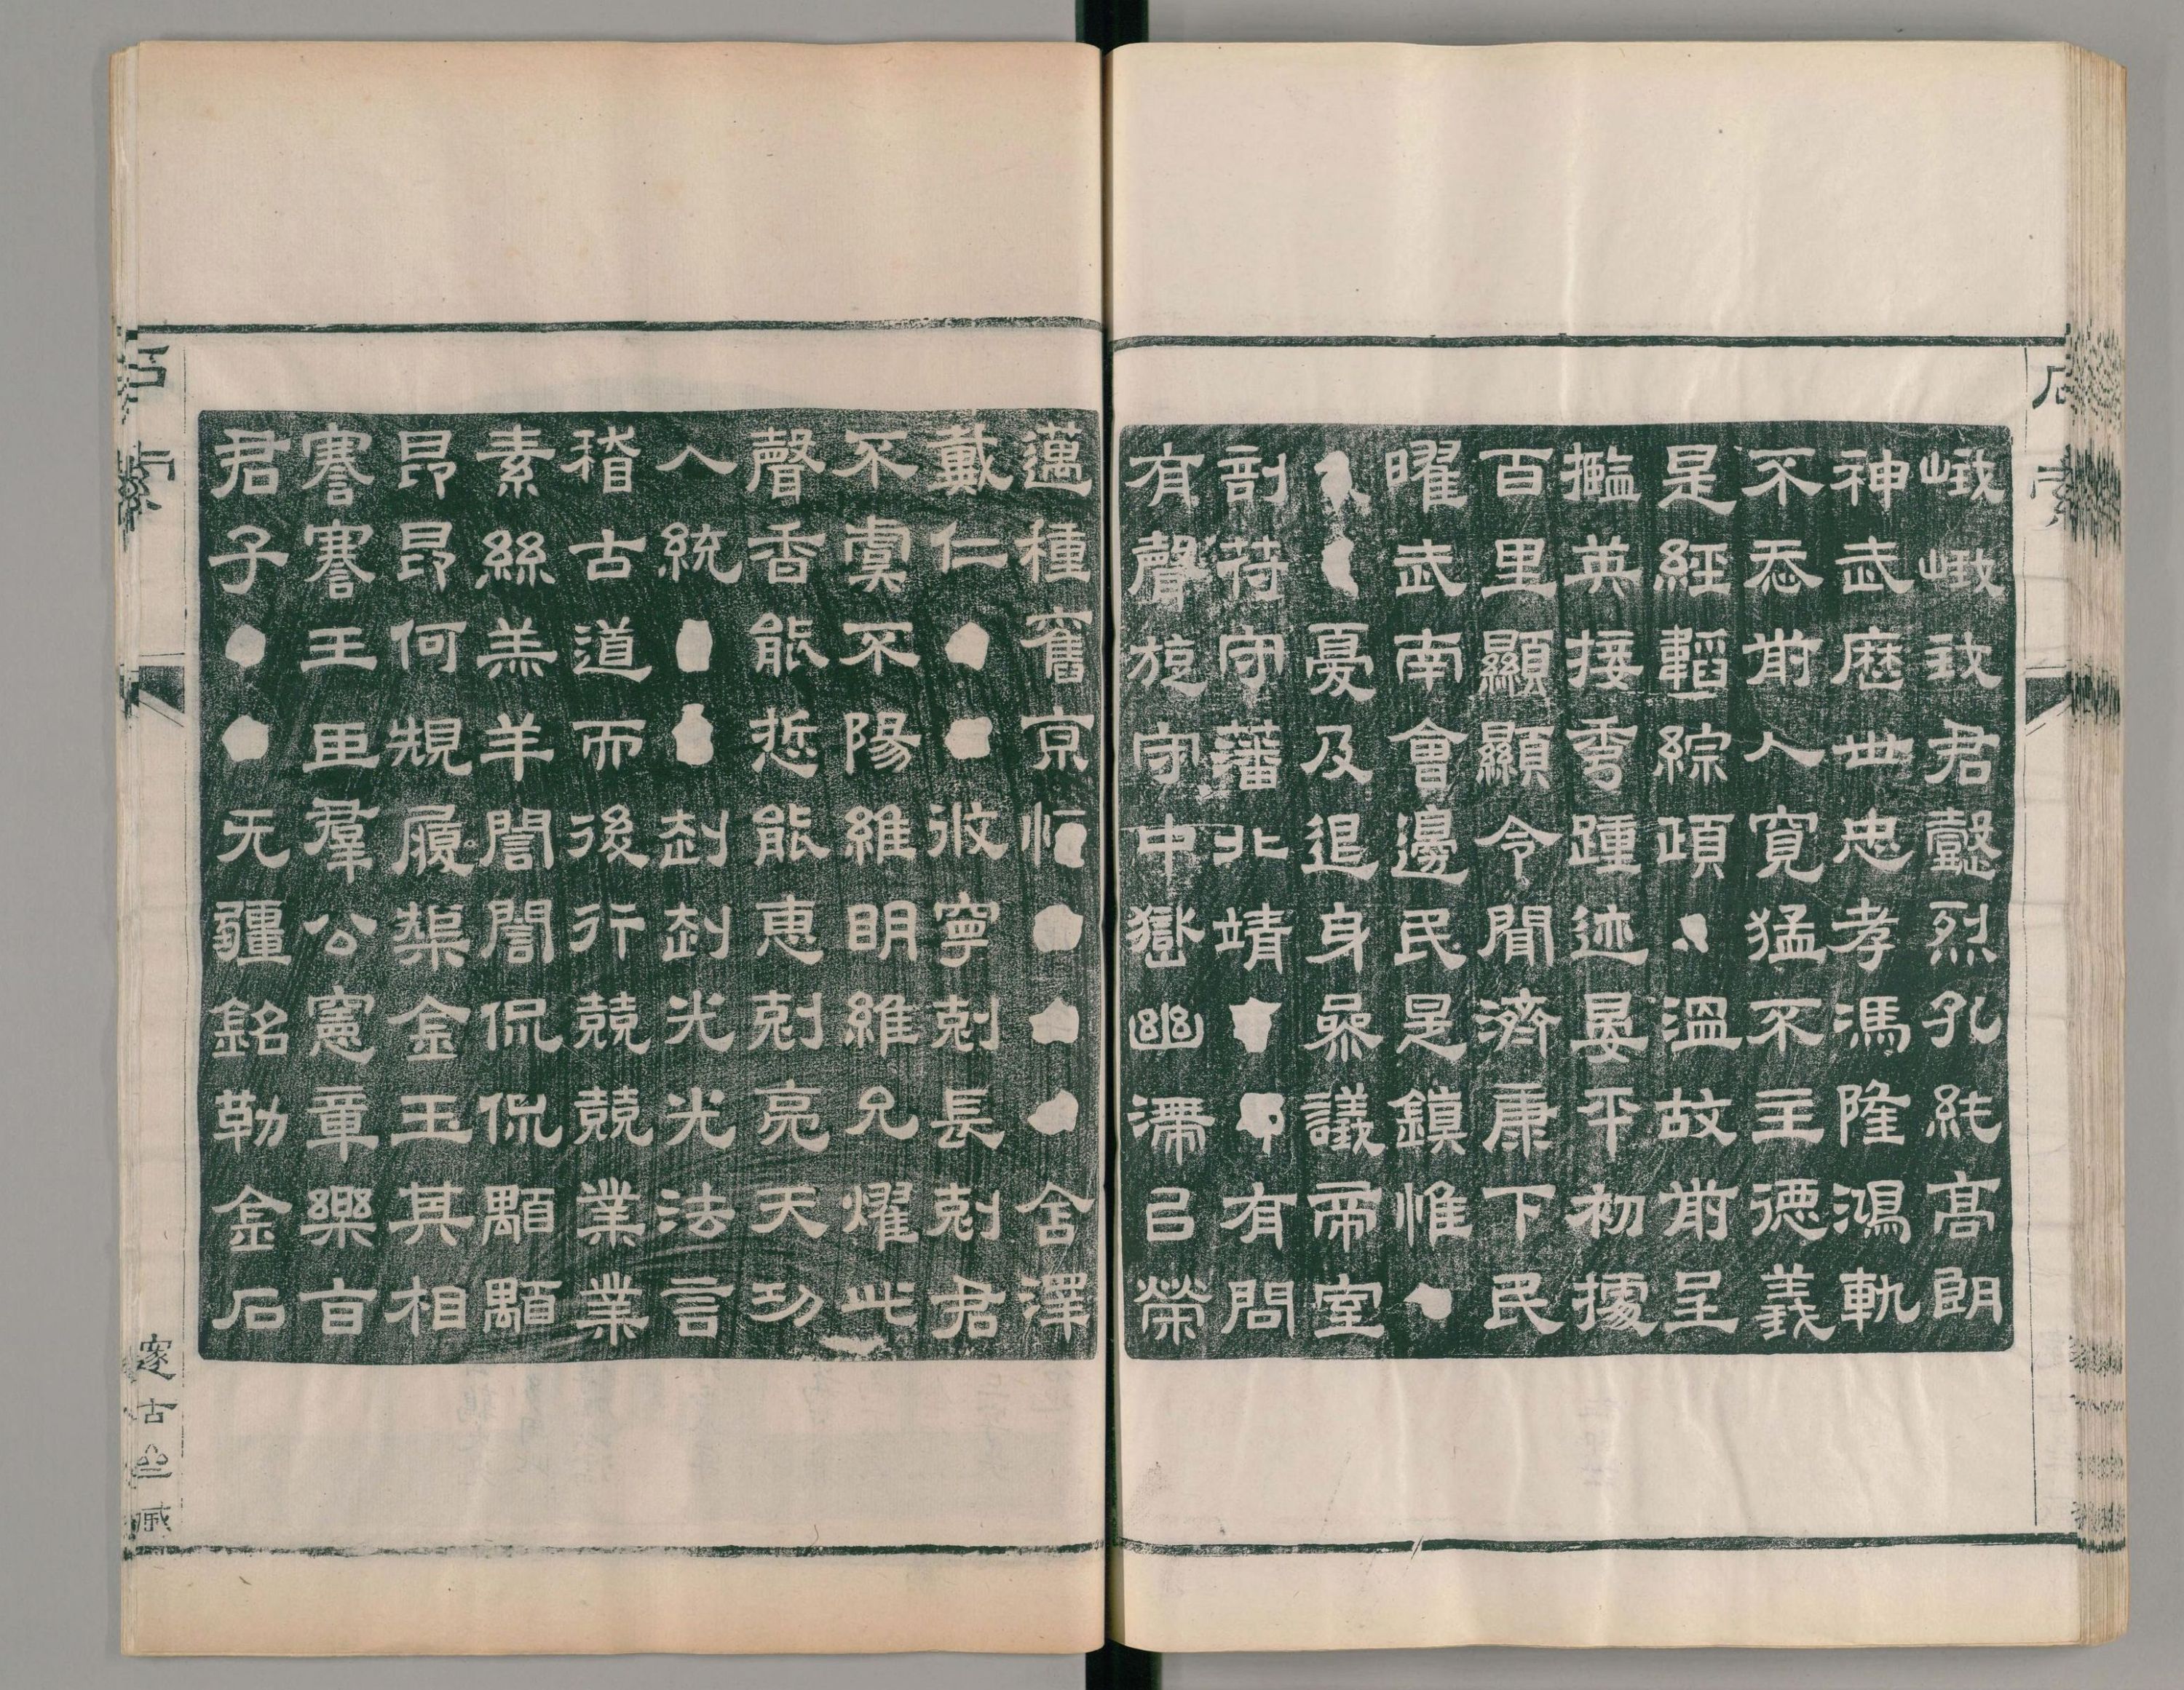 石索
峨峨我君懿烈孔純高朗
神武歷世忠孝馮隆鴻軌
不忝前人寬猛不主德義
是經韜綜頊溫故前呈
攬英接秀踵迹晏平初據
百里顯顯令聞濟康下民
曜武南會邊民是鎮惟
憂及退身參議帝室
剖符守藩北靖有問
有聲旋守中嶽幽滯以榮
邁種舊京舍澤
戴仁攸寧剋長剋君
不虞不陽維明維允燿此
聲香能悊能惠剋亮天功
人統赳赳光光法言
稽古道而後行兢兢業業
素絲羔羊誾誾侃侃顒顒
昂昂何規履榘金玉其相
謇謇王臣羣公憲章樂旨
君子无疆銘勒金石
石索
邃古藏